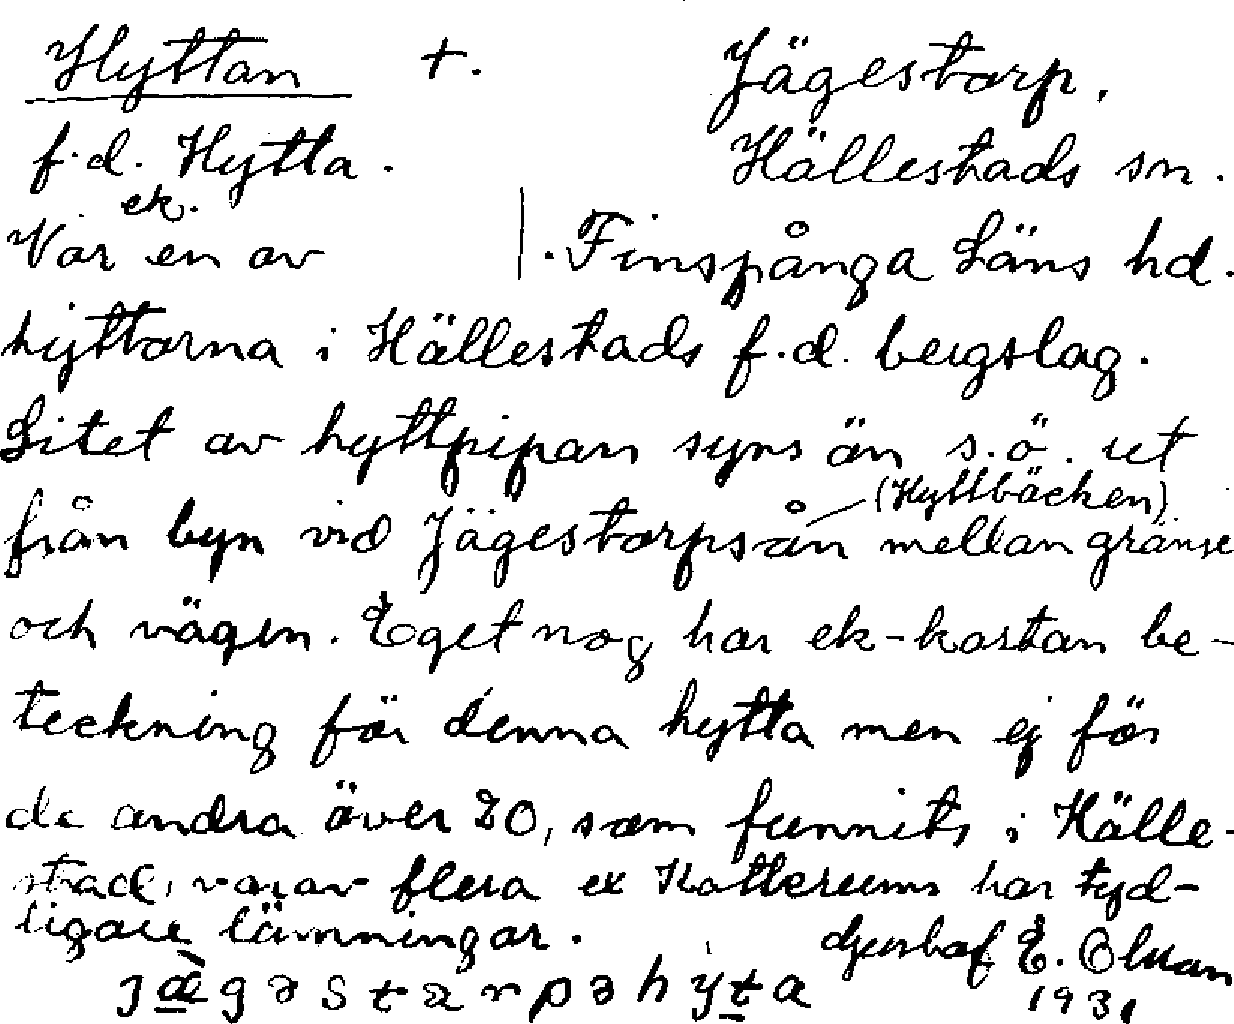 Hyttan + . Jägestorp.
f.d. Hytta. Hällestads sn.
ek.
Var en av | . Finspånga Läns hd.
hyttorna i Hällestads f.d. bergslag.
Litet av hyttpipan syns än s.ö. ut
(Hyttbäcken)
från byn vid Jägestorpsån mellan gränse
och vägen. Eget nog har ek-kartan be-
teckning för denna hytta men ej för
de andra över 20, som funnits i Hälle-
stad, varav flera ex har tyd-
ligare lämningar.
E. Olsson
1931